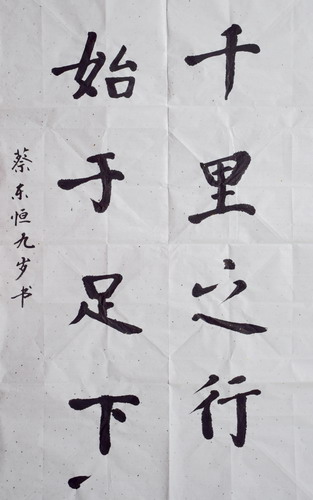 千里之行
始于足下
蔡东恒九岁书